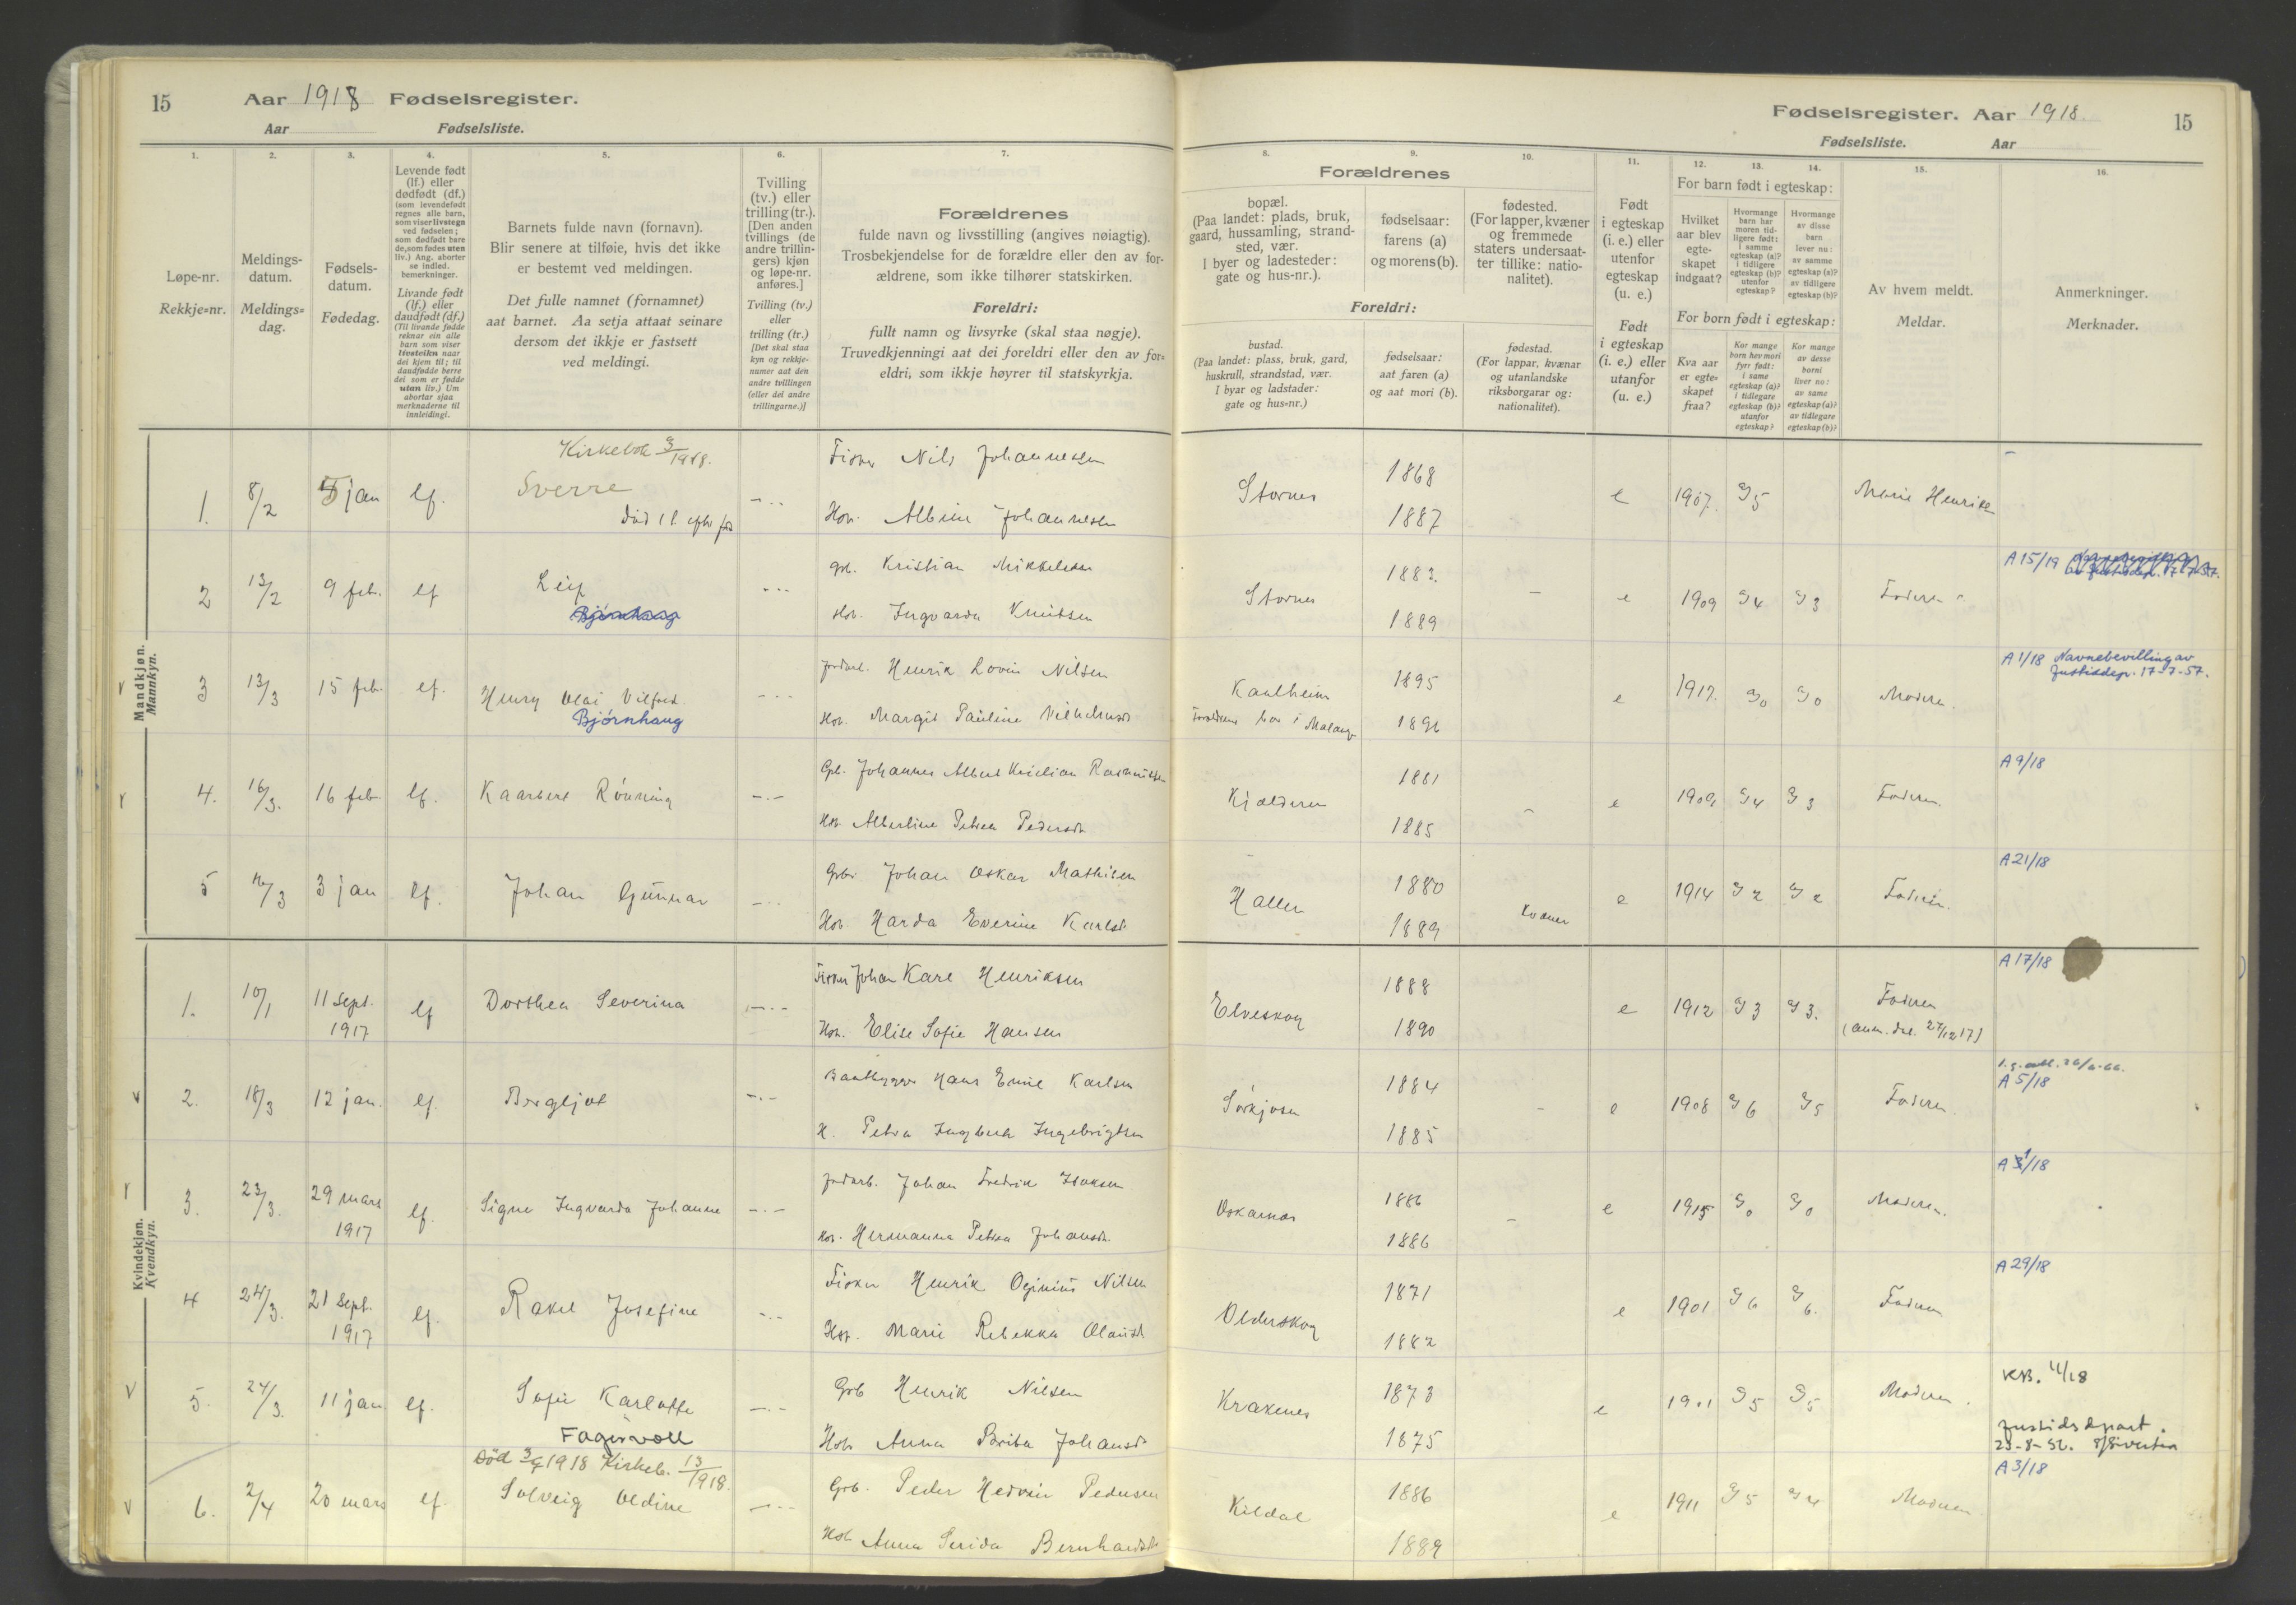 15 Aar 1918 Fødselsregister.
Aar Fødselsliste.
1.
Løpe-nr.
Rekkje=nr.
2.
Meldings-
datum.
Meldings=
dag.
3.
Fødsels-
datum.
Fødedag.
4.
Levende født
(lf.) eller
dødfødt (df.)
(som levendefødt
regnes alle barn,
som viser livstegn
ved fødselen;
som dødfødt bare
de, som fødes uten
liv.) Ang. aborter
se indled.
bemerkninger.
Livande født
(lf.) eller
daudfødt (df.)
(Til livande fødde
reknar ein alle
barn som viser
livsteikn naar
dei kjem til; til
daudfødde berre
dei som er fødde
utan liv.) Um
abortar sjaa
merknaderne til
innleidingi.
5.
Barnets fulde navn (fornavn).
Blir senere at tilføie, hvis det ikke
er bestemt ved meldingen.
Det fulle namnet (fornamnet)
aat barnet. Aa setja attaat seinare
dersom det ikkje er fastsett
ved meldingi.
6.
Tvilling
(tv.) eller
trilling (tr.).
[Den anden
tvillings (de
andre trillin-
gers) kjøn
og løpe-nr.
anføres.]
Tvilling (tv.)
eller
trilling (tr.)
[Det skal staa
kyn og rekkje-
numer aat den
andre tvillingen
(eller dei andre
trillingarne.)]
7.
Forældrenes
fulde navn og livsstilling (angives nøiagtig).
Trosbekjendelse for de forældre eller den av for-
ældrene, som ikke tilhører statskirken.
Foreldri:
fullt namn og livsyrke (skal staa nøgje).
Truvedkjenningi aat dei foreldri eller den av for=
eldri, som ikkje høyrer til statskyrkja.
Fødselsregister. Aar 1918. 15
Fødselsliste. Aar
8.
9.
10.
Forældrenes
bopæl.
(Paa landet: plads, bruk,
gaard, hussamling, strand-
sted, vær.
I byer og ladesteder:
gate og hus-nr.).
fødselsaar:
farens (a)
og morens (b).
fødested.
(For lapper, kvæner
og fremmede
staters undersaat-
ter tillike: natio-
nalitet).
Foreldri:
bustad.
(Paa landet: plass, bruk, gard,
huskrull, strandstad, vær.
I byar og ladstader:
gate og hus=nr.)
fødselsaar:
aat faren (a)
og aat mori (b).
fødestad.
(For lappar, kvænar
og utanlandske
riksborgarar og:
nationalitet).
11.
Født
i egteskap
(i. e.) eller
utenfor
egteskap
(u. e.)
Født
i egteskap
(i. e.) eller
utanfor
(u. e.)
12.
13.
14.
For barn født i egteskap:
Hvilket
aar blev
egte-
skapet
indgaat?
Hvormange
barn har
moren tid-
ligere født:
i samme
egteskap (a)?
i tidligere
egteskap (b)?
utenfor
egteskap?
Hvormange
av disse
barn
lever nu:
av samme
egteskap (a)?
av tidligere
egteskap (b)?
For born født i egteskap:
Kva aar
er egte=
skapet
fraa?
Kor mange
born hev mori
fyrr født:
i same
egteskap (a)?
i tidlegare
egteskap (b)?
utanfor
egteskap?
Kor mange
av desse
borni
liver no:
av same
egteskap (a)?
av tidlegare
egteskap (b)?
15.
Av hvem meldt.
Meldar.
16.
Anmerkninger.
Merknader.
Mandkjøn.
Mannkyn.
Kirkebok 3/1918.
1. 8/2 5 jan lf. Sverre
Fisker Nils Johannessen
Hst. Albine Johannessen
Stornes 1868 1887 e 1907. 5 Marie Henriks
2 13/2 9 feb. lf Leif
Bjørnhaug
Gbr. Kristian Mikkelsen
Hst. Ingvarda Knutsen
Stornes 1883. 1889 e 1909 4 3 Faderen
A 15/19
3 13/3 15 feb. lf. Henry Olai Vilfred
Bjørnhaug
Jordarb. Henrik Lovin Nilsen
Hst. Margit Pauline Vilhelmsd
Kantheim
Forældrene bor i Malangen
1895 1896 e 1917. 0 0 Moderen.
A 1/18 Navnebevilling av
Justisdep. 17-7-57.
4. 16/3. 16 feb lf. Kaarbert Rønning
Gbr. Johannes Albert Kristian Rasmussen
Hst. Albertine Petrea Pedersd.
Kjelderen 1881 1885 e 1909 4 3 Faderen.
A 9/18
5 16/3 3 jan lf. Johan Gunnar
Grbr Johan Oskar Mathisen
Hst. Harda Everine Karlsd.
Hallen 1880 1889 Kvæner e 1914 2 2 Faderen.
A 21/18
Kvindekjøn.
Kvendkyn.
1. 10/1 11 Sept. 1917 lf Dorthea Severina
Fisker Johan Karl Henriksen
Hst. Elise Sofie Hansen
Elveskog 1888 1890 e 1912 3 3. Faderen
(anm. dat. 27/12 17)
A 17/18
2. 18/3 12 jan. lf. Bergljot
Baatbygger Hans Emil Karlsen
H. Petra Ingbert Ingebrigtsen
Sørkjosen 1884 1885 e 1908 6 5 Faderen.
A 5/18
3. 23/3. 29 mars 1917 lf. Signe Ingvarda Johanne
Jordarb. Johan Fredrik Isaksen
Hst. Hermanna Petrea Johansd.
Oskarnes 1886 1886 e 1915 0 0 Moderen.
A 31/18
4 24/3. 21 Sept. 1917 lf. Rakel Josefine
Fisker Henrik Oginius Nilsen
Hst. Marie Rebekka Olausd
Olderskog 1871 1882 e 1901 6 6. Faderen
A 29/18
5. 24/3. 11 jan lf. Sofie Karlotte
Fagervoll
Grb Henrik Nilsen
Hst Anna Brita Johansd.
Kraknes 1873 1875 e 1901 5 5 Moderen.
KB. 11/18
Justidsdepart.
23-8-52. Sivertsen
Død 3/9 1918 Kirkeb. 13/1918.
6. 2/4 20 mars lf. Solveig Oldine
Grb. Peder Hedvin Pedersen
Hst Anna Serida Bernhardsd.
Kildal 1886 1889 e 1911 5 4 Moderen
A 3/18